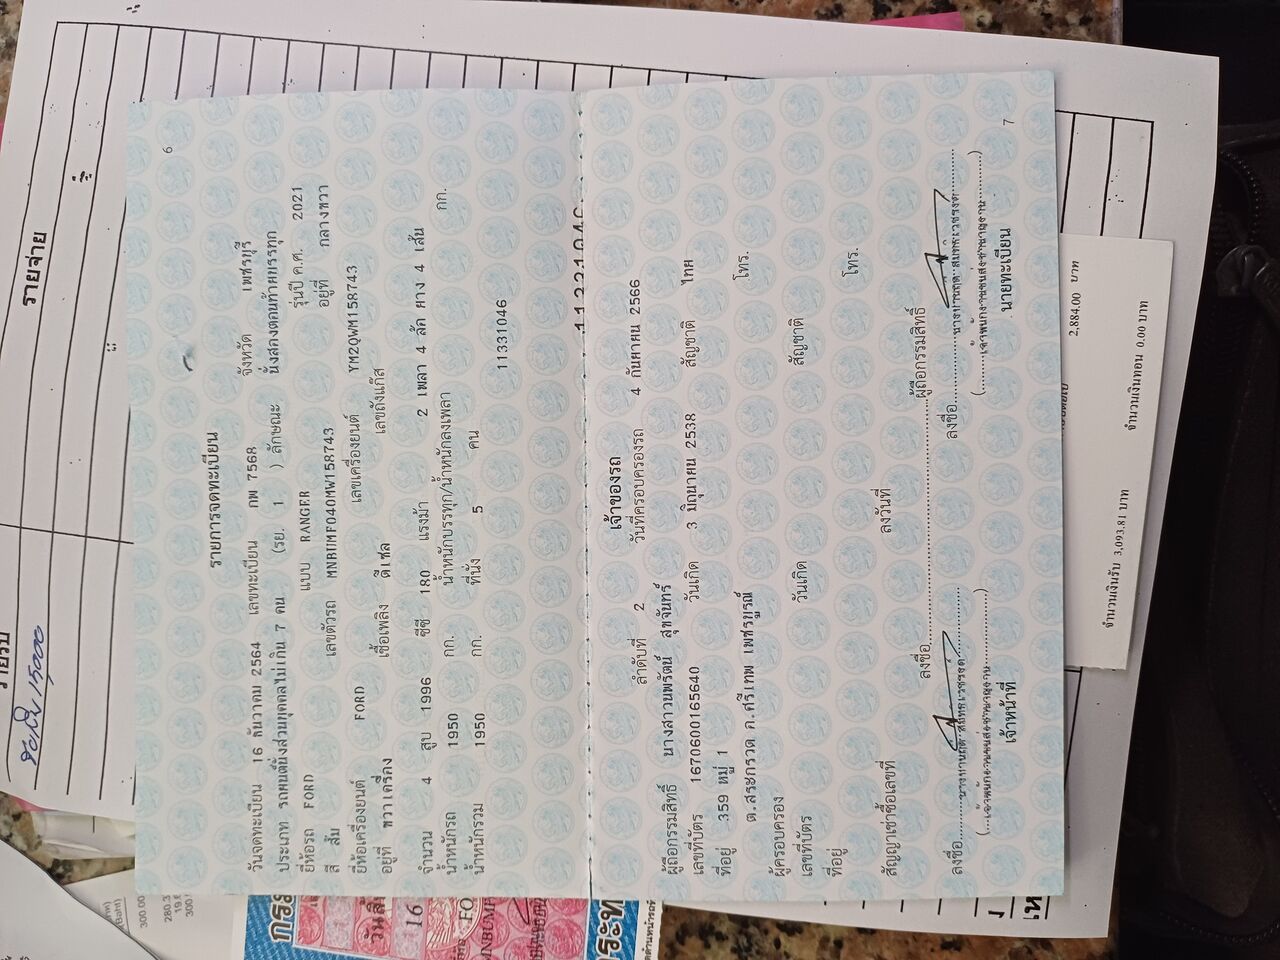 รายจ่าย
รายรับ
ขอเงิน 15,000
6
รายการจดทะเบียน
วันจดทะเบียน 16 ธันวาคม 2564 เลขทะเบียน กพ 7568 จังหวัด เพชรบุรี
ประเภท รถยนต์นั่งส่วนบุคคลไม่เกิน 7 คน (รย. 1 ) ลักษณะ นั่งสองตอนท้ายบรรทุก
ยี่ห้อรถ FORD แบบ RANGER รุ่นปี ค.ศ. 2021
สี ส้ม เลขตัวรถ MNBUMF040MW158743 อยู่ที่ กลางขวา
ยี่ห้อเครื่องยนต์ FORD เลขเครื่องยนต์ YM2QWM158743
อยู่ที่ ขวาเครื่อง เชื้อเพลิง ดีเซล เลขถังแก๊ส
จำนวน 4 สูบ 1996 ซีซี 180 แรงม้า 2 เพลา 4 ล้อ ยาง 4 เส้น
น้ำหนักรถ 1950 กก. น้ำหนักบรรทุก/น้ำหนักลงเพลา กก.
น้ำหนักรวม 1950 กก. ที่นั่ง 5 คน
11331046
11331046
เจ้าของรถ
ลำดับที่ 2 วันที่ครอบครองรถ 4 กันยายน 2566
ผู้ถือกรรมสิทธิ์ นางสาวนพรัตน์ สุขจันทร์
เลขที่บัตร 1670600165640 วันเกิด 3 มิถุนายน 2538 สัญชาติ ไทย
ที่อยู่ 359 หมู่ 1
ต.สระกรวด อ.ศรีเทพ เพชรบูรณ์ โทร.
ผู้ครอบครอง
เลขที่บัตร วันเกิด สัญชาติ
ที่อยู่ โทร.
สัญญาเช่าซื้อเลขที่ ลงวันที่
ลงชื่อ ผู้ถือกรรมสิทธิ์
ลงชื่อ ลงชื่อ
(เจ้าพนักงานขนส่งชำนาญงาน) (เจ้าพนักงานขนส่งชำนาญงาน)
เจ้าหน้าที่ นายทะเบียน
7
2,884.00 บาท
จำนวนเงินรับ 3,093.81 บาท จำนวนเงินทอน 0.00 บาท
(Baht)
300.00
16